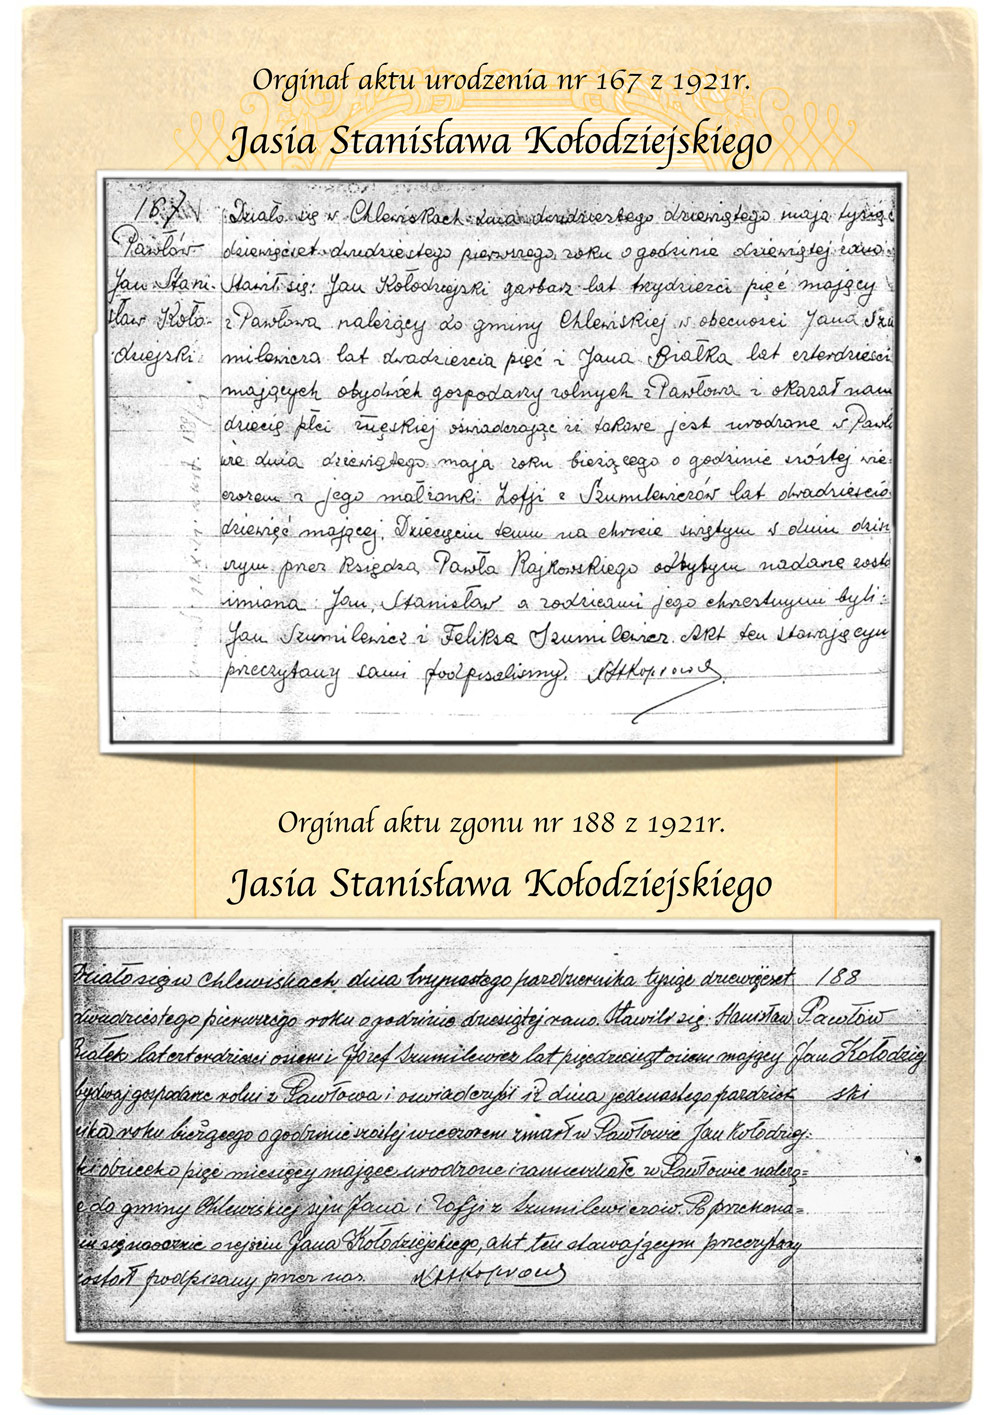 Orginał aktu urodzenia nr 167 z 1921r.
Jasia Stanisława Kołodziejskiego
167
Pawłów
Jan Stani-
sław Koło-
dziejski
Działo się w Chlewiskach dnia dwudziestego dziewiątego maja tysiąc
dziewięćset dwudziestego pierwszego roku o godzinie dziewiątej rano.
Stawił się: Jan Kołodziejski garbarz lat trzydzieści pięć mający
z Pawłowa należący do gminy Chlewiskiej w obecności Jana Szu
milewicza lat dwadzieścia pięć i Jana Białka lat czterdzieści
mających obydwóch gospodarzy rolnych z Pawłowa i okazał nam
dziecię płci męskiej oświadczając iż takowe jest urodzone w Pawło
wie dnia dziewiątego maja roku bieżącego o godzinie szóstej wie-
czorem z jego małżonki Zofji z Szumilewiczów lat dwadzieścia
dziewięć mającej. Dziecięciu temu na chrzcie świętym w dniu dzisi
szym przez Księdza Pawła Rajkowskiego odbytym nadane zosta
imiona: Jan, Stanisław a rodzicami jego chrzestnymi byli:
Jan Szumilewicz i Feliksa Szumilewicz. Akt ten stawającym
przeczytany sami podpisaliśmy.
Orginał aktu zgonu nr 188 z 1921r.
Jasia Stanisława Kołodziejskiego
188
Pawłów
Jan Kołodziej
ski
Działo się w Chlewiskach dnia trzynastego października tysiąc dziewięćset
dwadziestego pierwszego roku o godzinie dziesiątej rano. Stawili się: Stanisław
Białek lat czterdzieści osiem i Józef Szumilewicz lat pięćdziesiąt osiem mający
obydwaj gospodarze rolni z Pawłowa i oświadczyli iż dnia jedenastego paździer
nika roku bieżącego o godzinie szóstej wieczorem zmarł w Pawłowie Jan Kołodziej-
ski dziecko pięć miesięcy mające urodzone i zamieszkałe w Pawłowie należą-
ce do gminy Chlewiskiej syn Jana i Zofji z Szumilewiczów. Po przekona-
niu się naocznie o zejściu Jana Kołodziejskiego, akt ten stawającym przeczytany
został podpisany przez nas.